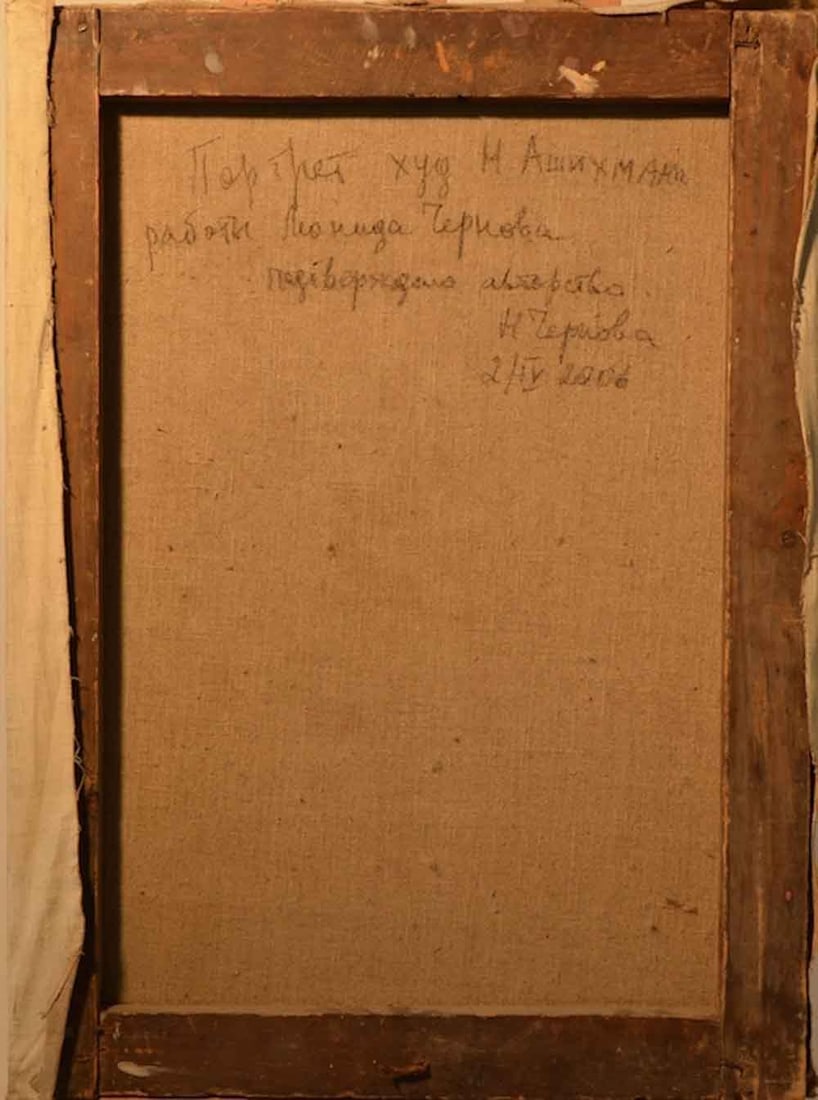 Портрет худ Н Ашихмана
работы Леонида Чернова
подтверждаю авторство.
Н Чернова
2/IV 2006